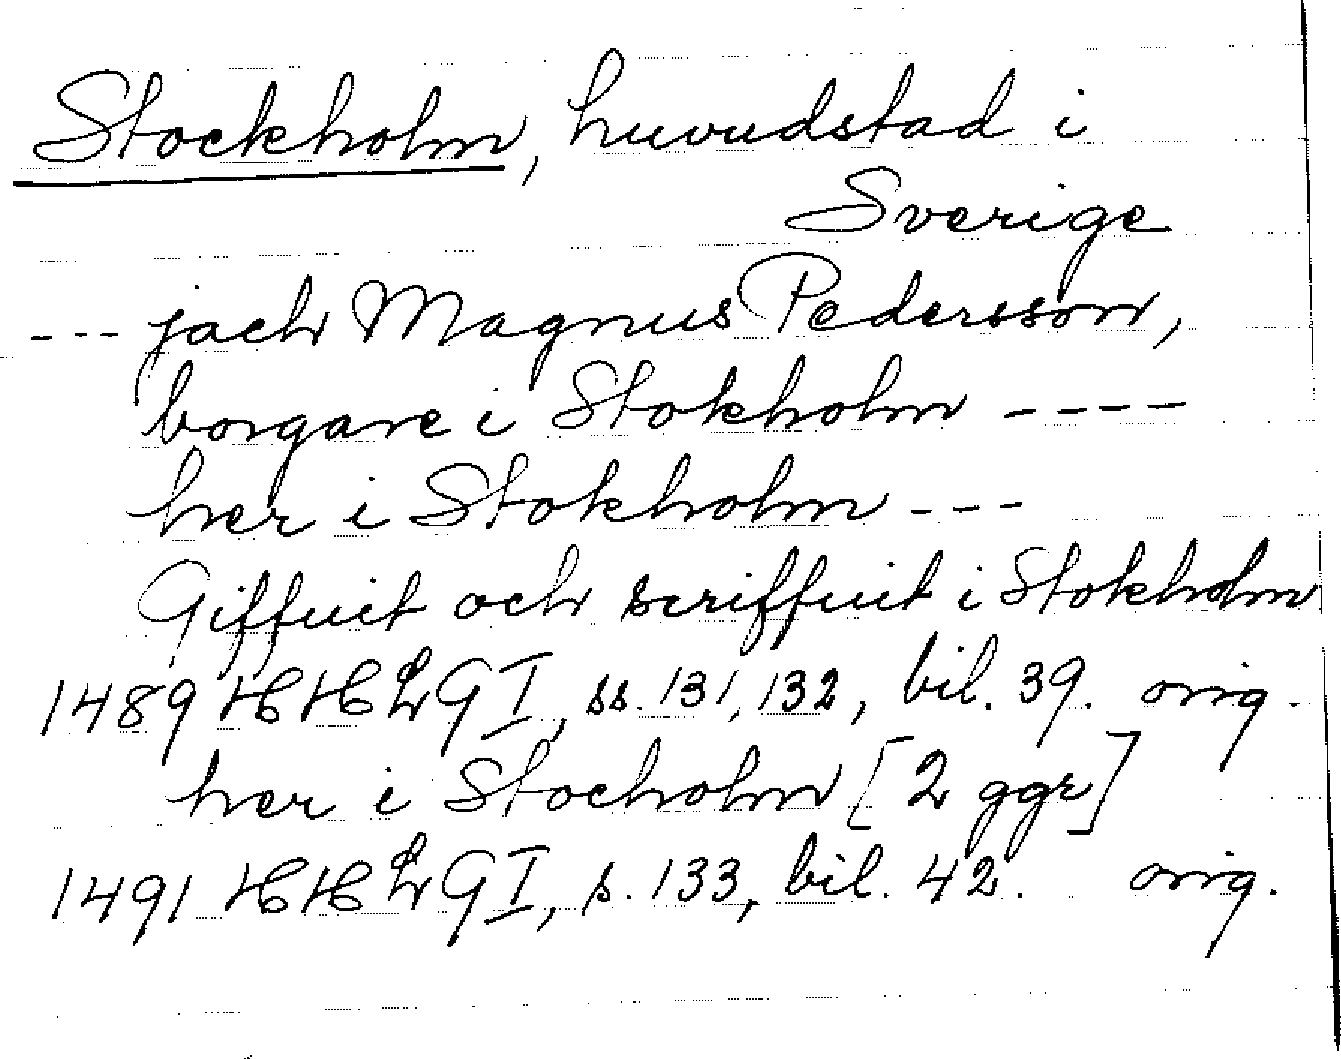 Stockholm, huvudstad i
Sverige
--- jach Magnus Pedersson,
borgare i Stokholm ----
her i Stokholm ---
Giffuit och scriffuit i Stokholm
1489 HHLG I, ss. 131, 132, bil. 39. orig.
her i Stocholm [2 ggr]
1491 HHLG I, s. 133, bil. 42. orig.